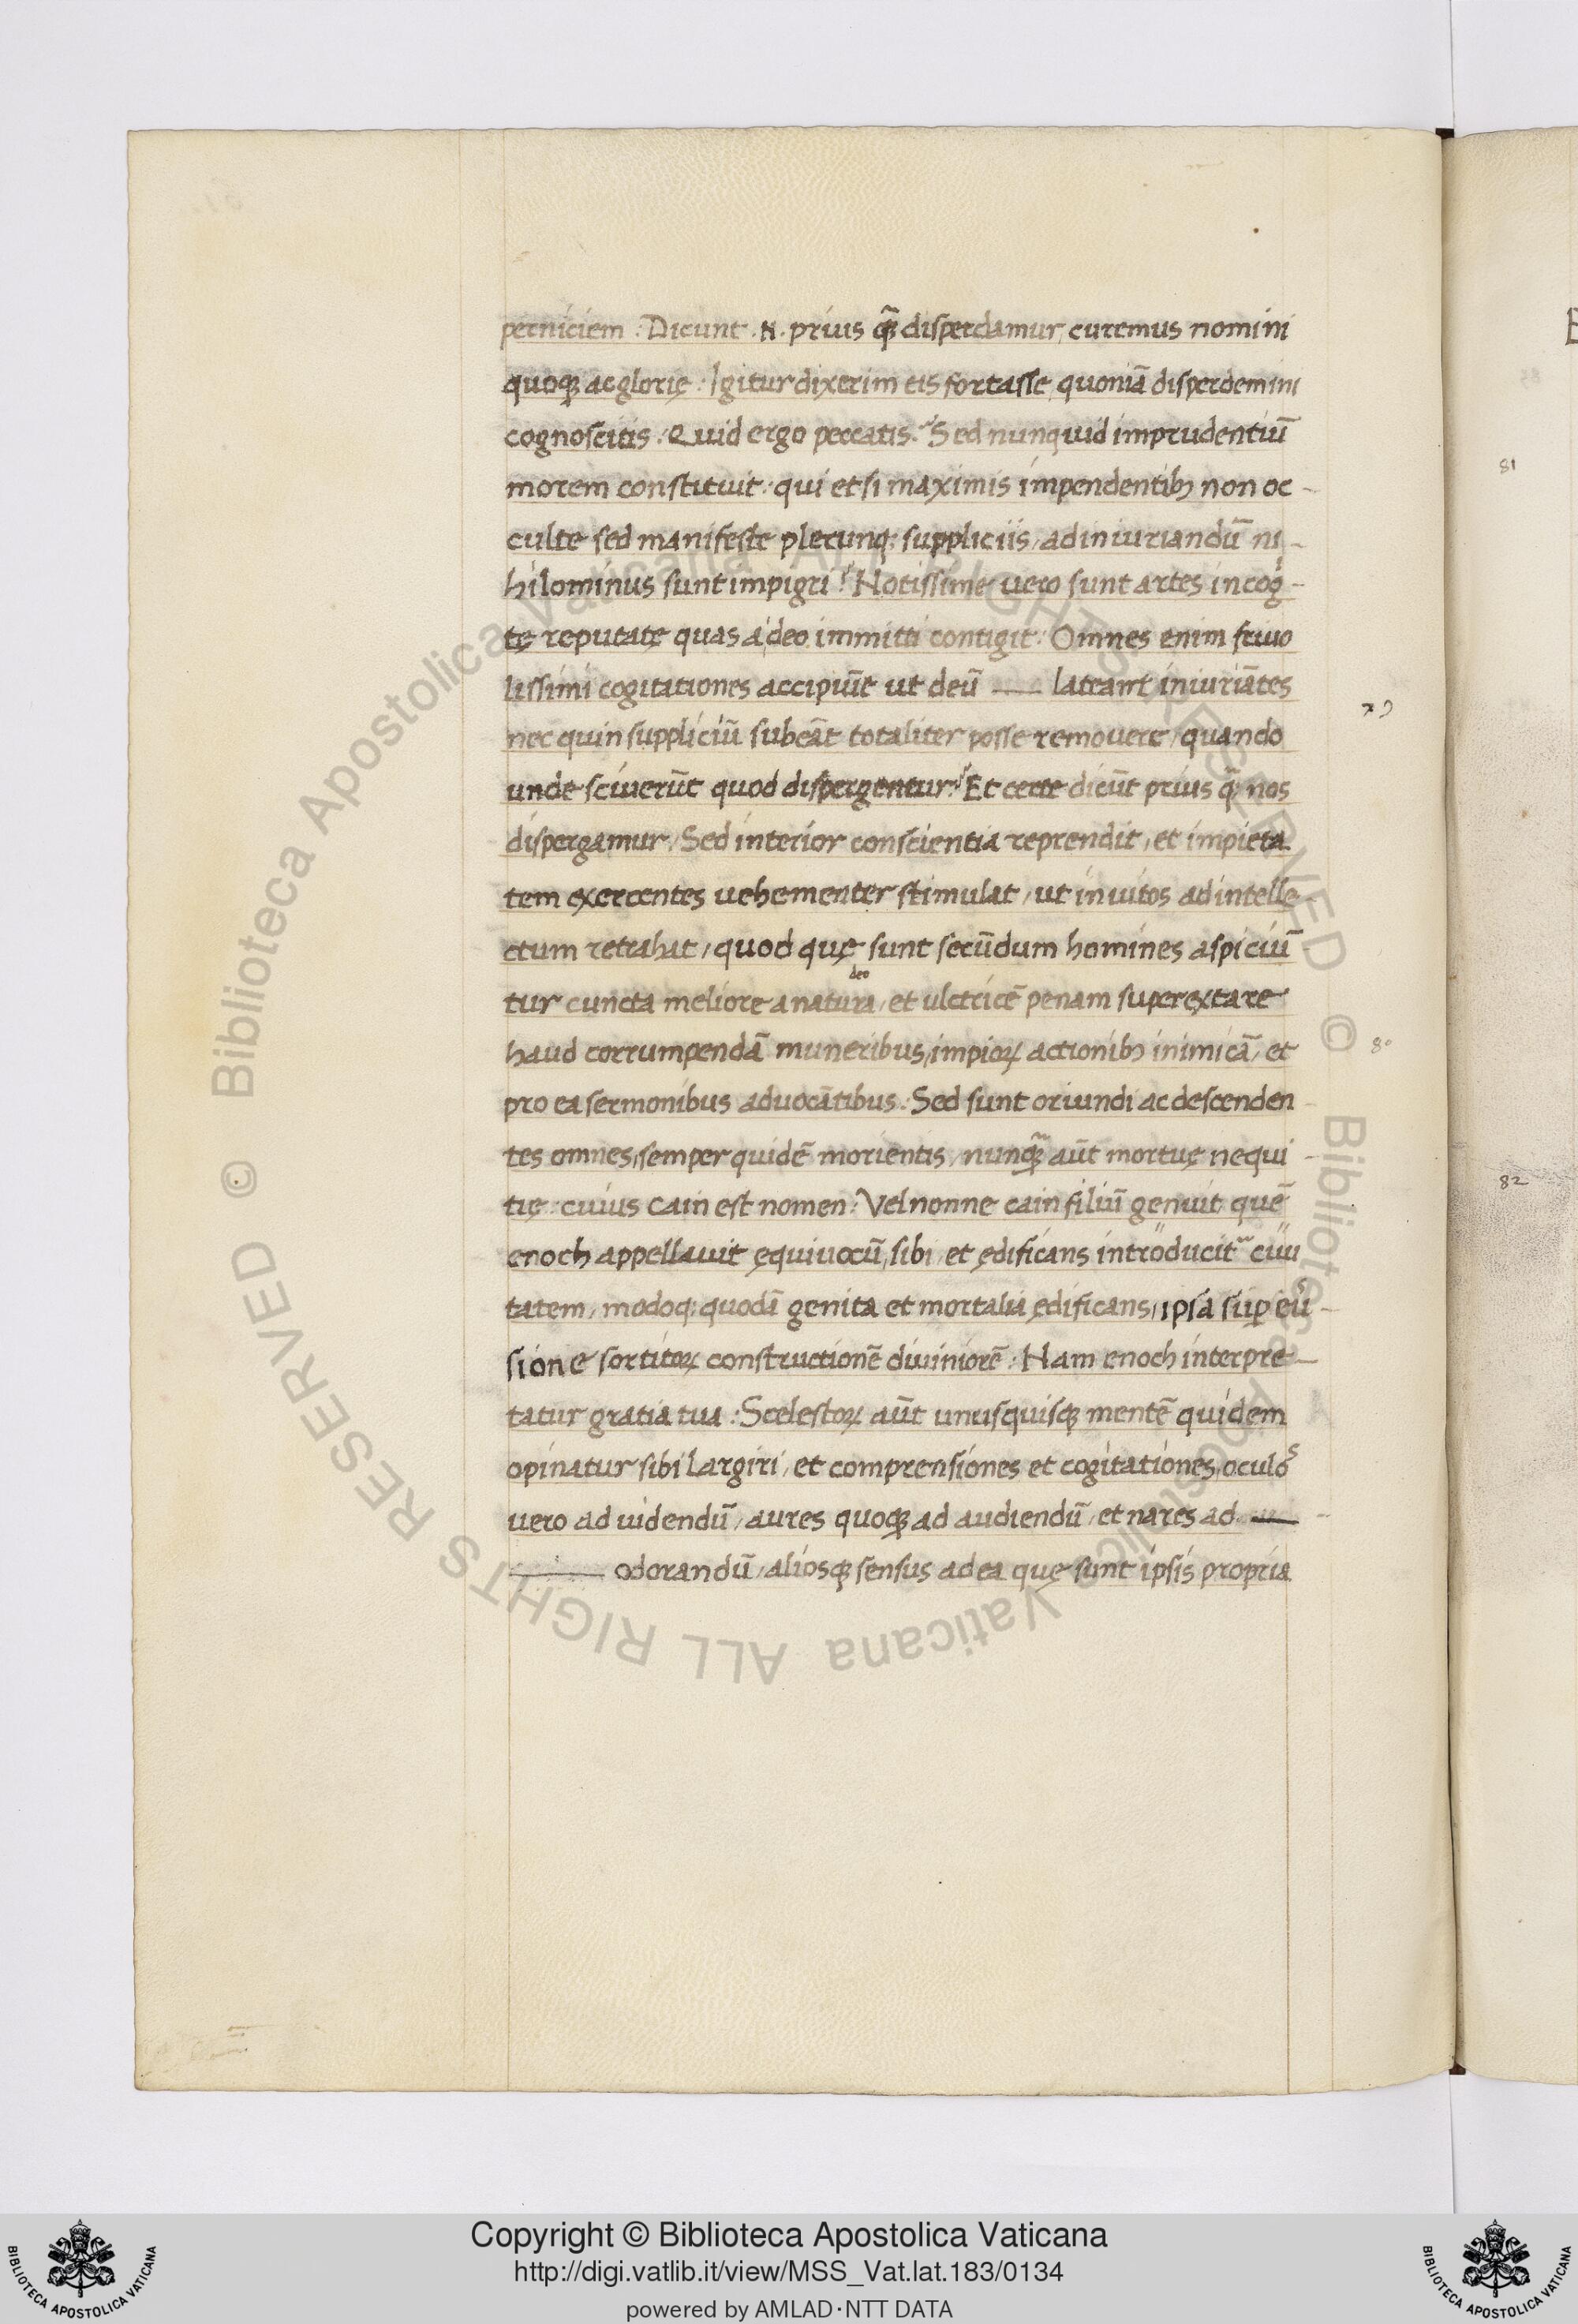 perniciem : Dicunt .N. prius qꝫ̃ disperdamur, curemus nomini
quoqꝫ ac glorię : Igitur dixerim eis fortasse, quoniã disperdemini
cognoscitis : Quid ergo peccatis ? Sed nunquid imprudentiũ
morem constituit : qui etsi maximis impendentibꝫ non oc -
culte sed manifeste plerunqꝫ suppliciis / ad iniuriandũ ni -
hilominus sunt impigri ? Notissime uero sunt artes incog̍ -
tę reputatę quas a deo immitti contigit : Omnes enim friuo
lissimi cogitationes accipiũt ut deũ lateant iniuriãtes
nec quin suppliciũ subeãt totaliter posse remouere / quando
unde sciuerũt quod dispergentur ? Et certe dicũt prius q̃ꝫ nos
dispergamur / Sed interior conscientia reprendit / et impieta
tem exercentes uehementer stimulat / ut inuitos ad intelle -
ctum retrahat / quod quę sunt secũdum homines aspiciũ
deo
tur cuncta meliore a natura / et ulctricẽ penam superextare
haud corrumpendã muneribus / impioꝝ actionibꝫ inimicã / et
pro ea sermonibus aduocãtibus : Sed sunt oriundi ac descenden -
tes omnes / semper quidẽ morientis / nunqꝫ̃ aũt mortuę nequi -
tię : cuius cain est nomen : Vel nonne cain filiũ genuit quẽ
enoch appellauit ęquiuocũ sibi / et ędificans introducit ciui
tatem / modoqꝫ quodã genita et mortalia ędificans / ipsa suꝑ eũ -
sione sortitoꝝ constructionẽ diuiniorẽ : Nam enoch interpre -
tatur gratia tua : Scelestoꝝ aũt unusquisqꝫ mentẽ quidem
opinatur sibi largiri / et comprensiones et cogitationes / oculos
uero ad uidendũ / aures quoqꝫ ad audiendũ / et nares ad
odorandũ / aliosqꝫ sensus ad ea quę sunt ipsis propria
79
80
81
82
© Biblioteca Apostolica Vaticana ALL RIGHTS RESERVED © Biblioteca Apostolica Vaticana ALL RIGHTS RESERVED
Copyright © Biblioteca Apostolica Vaticana
http://digi.vatlib.it/view/MSS_Vat.lat.183/0134
powered by AMLAD·NTT DATA
BIBLIOTECA APOSTOLICA VATICANA
BIBLIOTECA APOSTOLICA VATICANA